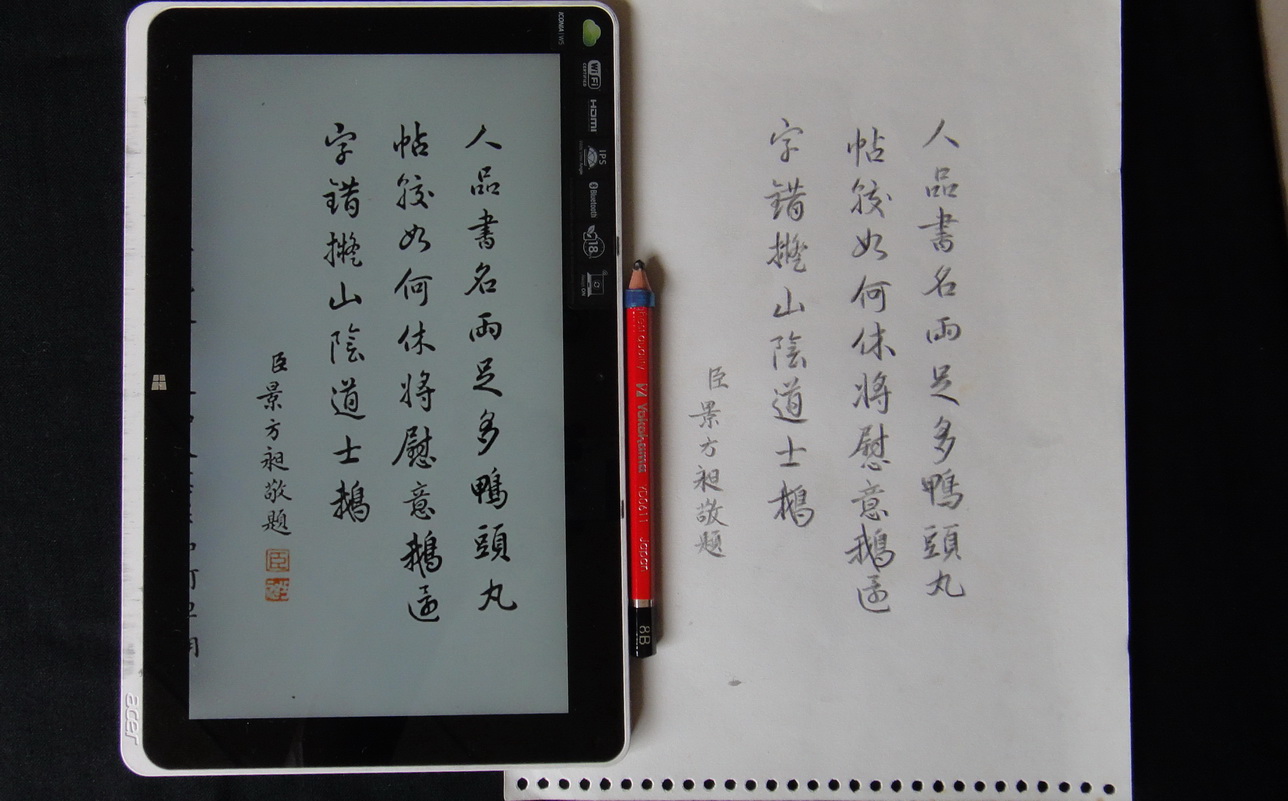 人品書名兩足多鴨頭丸
帖較如何休將慰意鵝函
字錯擬山陰道士鵝
臣景方昶敬題
臣
人品書名兩足多鴨頭丸
帖較如何休將慰意鵝函
字錯擬山陰道士鵝
臣景方昶敬題
ICONIA W5
WiFi
CERTIFIED
HDMI
IPS
Bluetooth
acer
Yokohama
Japan
8B